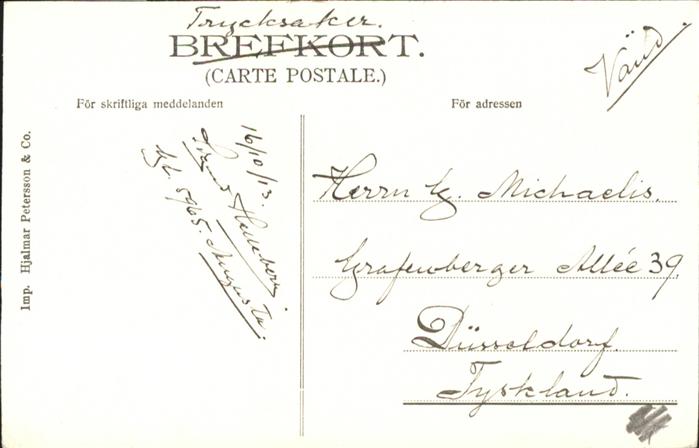 Trycksaker.
BREFKORT.
(CARTE POSTALE.)
Vänd.
För skriftliga meddelanden
För adressen
Imp. Hjalmar Petersson & Co.
16/10/13.
5965. Augusta.
Herrn G. Michaelis.
Grafenberger Allée 39.
Düsseldorf.
Tyskland.